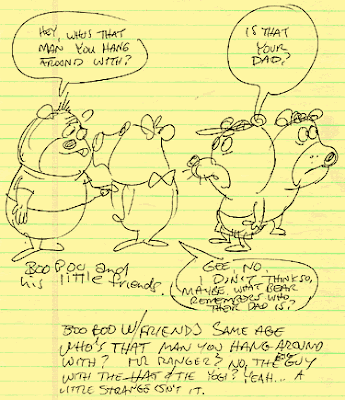 HEY, WHO'S THAT
MAN YOU HANG
AROUND WITH?
IS THAT
YOUR
DAD?
BOO BOO and
his little friends.
GEE, NO,
I DON'T THINK SO,
MAYBE. WHAT BEAR
REMEMBERS WHO
THEIR DAD IS?
BOO BOO W/FRIENDS SAME AGE
WHO'S THAT MAN YOU HANG AROUND
WITH? MR RANGER? NO, THE BIG GUY
WITH THE HAT & TIE YOGI? YEAH... A
LITTLE STRANGE ISN'T IT.